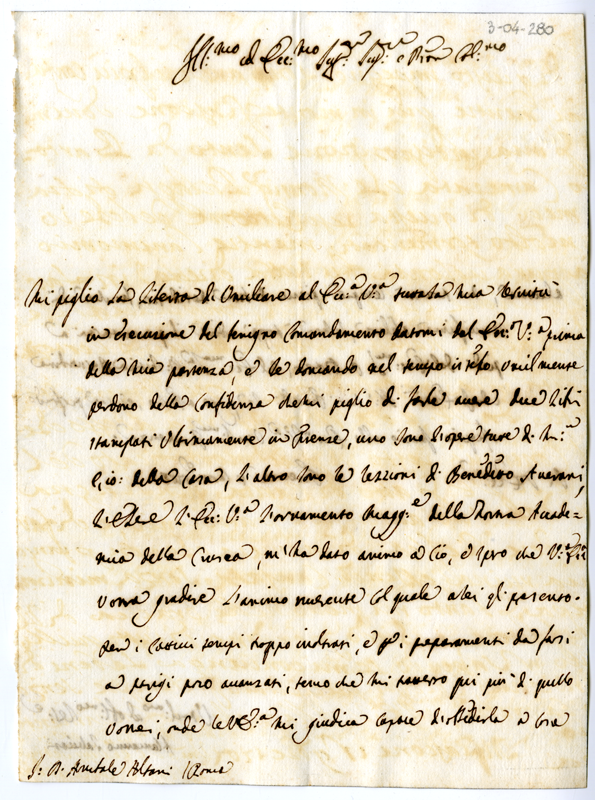 3-04-280
Ill:mo ed Ecc:mo Sig:re Sig:re e Pron Col:mo
Mi piglio La Libertà di Umiliare al Ecc:a V:a tutta la mia servitù
in esecuzione del benigno Comandamento datomi dal Ecc:a V:a prima
della mia partenza, e le domando nel tempo istesso umilmente
perdono della Confidenza che mi piglio di farle avere due Libri
stampati Ultimamente in Firenze, uno sono l'opere tutte di M:r
Gio: della Casa, L'altro sono le Lezzioni di Benedetto Averani,
L'essere L'Ecc: V:a L'ornamento Magg:e della Nostra Accade=
mia della Crusca, m'ha dato animo a ciò, e spero che V:a Ecc:a
vorrà gradire L'animo riverente Col quale a lei gli presento.
Per i Cattivi tempi troppo inoltrati, e p i preparamenti da farsi
a parigi poco avanzati, temo che mi tratterrò qui più di quello
vorrei, onde se V:E:a mi giudica Capace di obbedirla a Cosa
S: D: Annibale Albani Roma